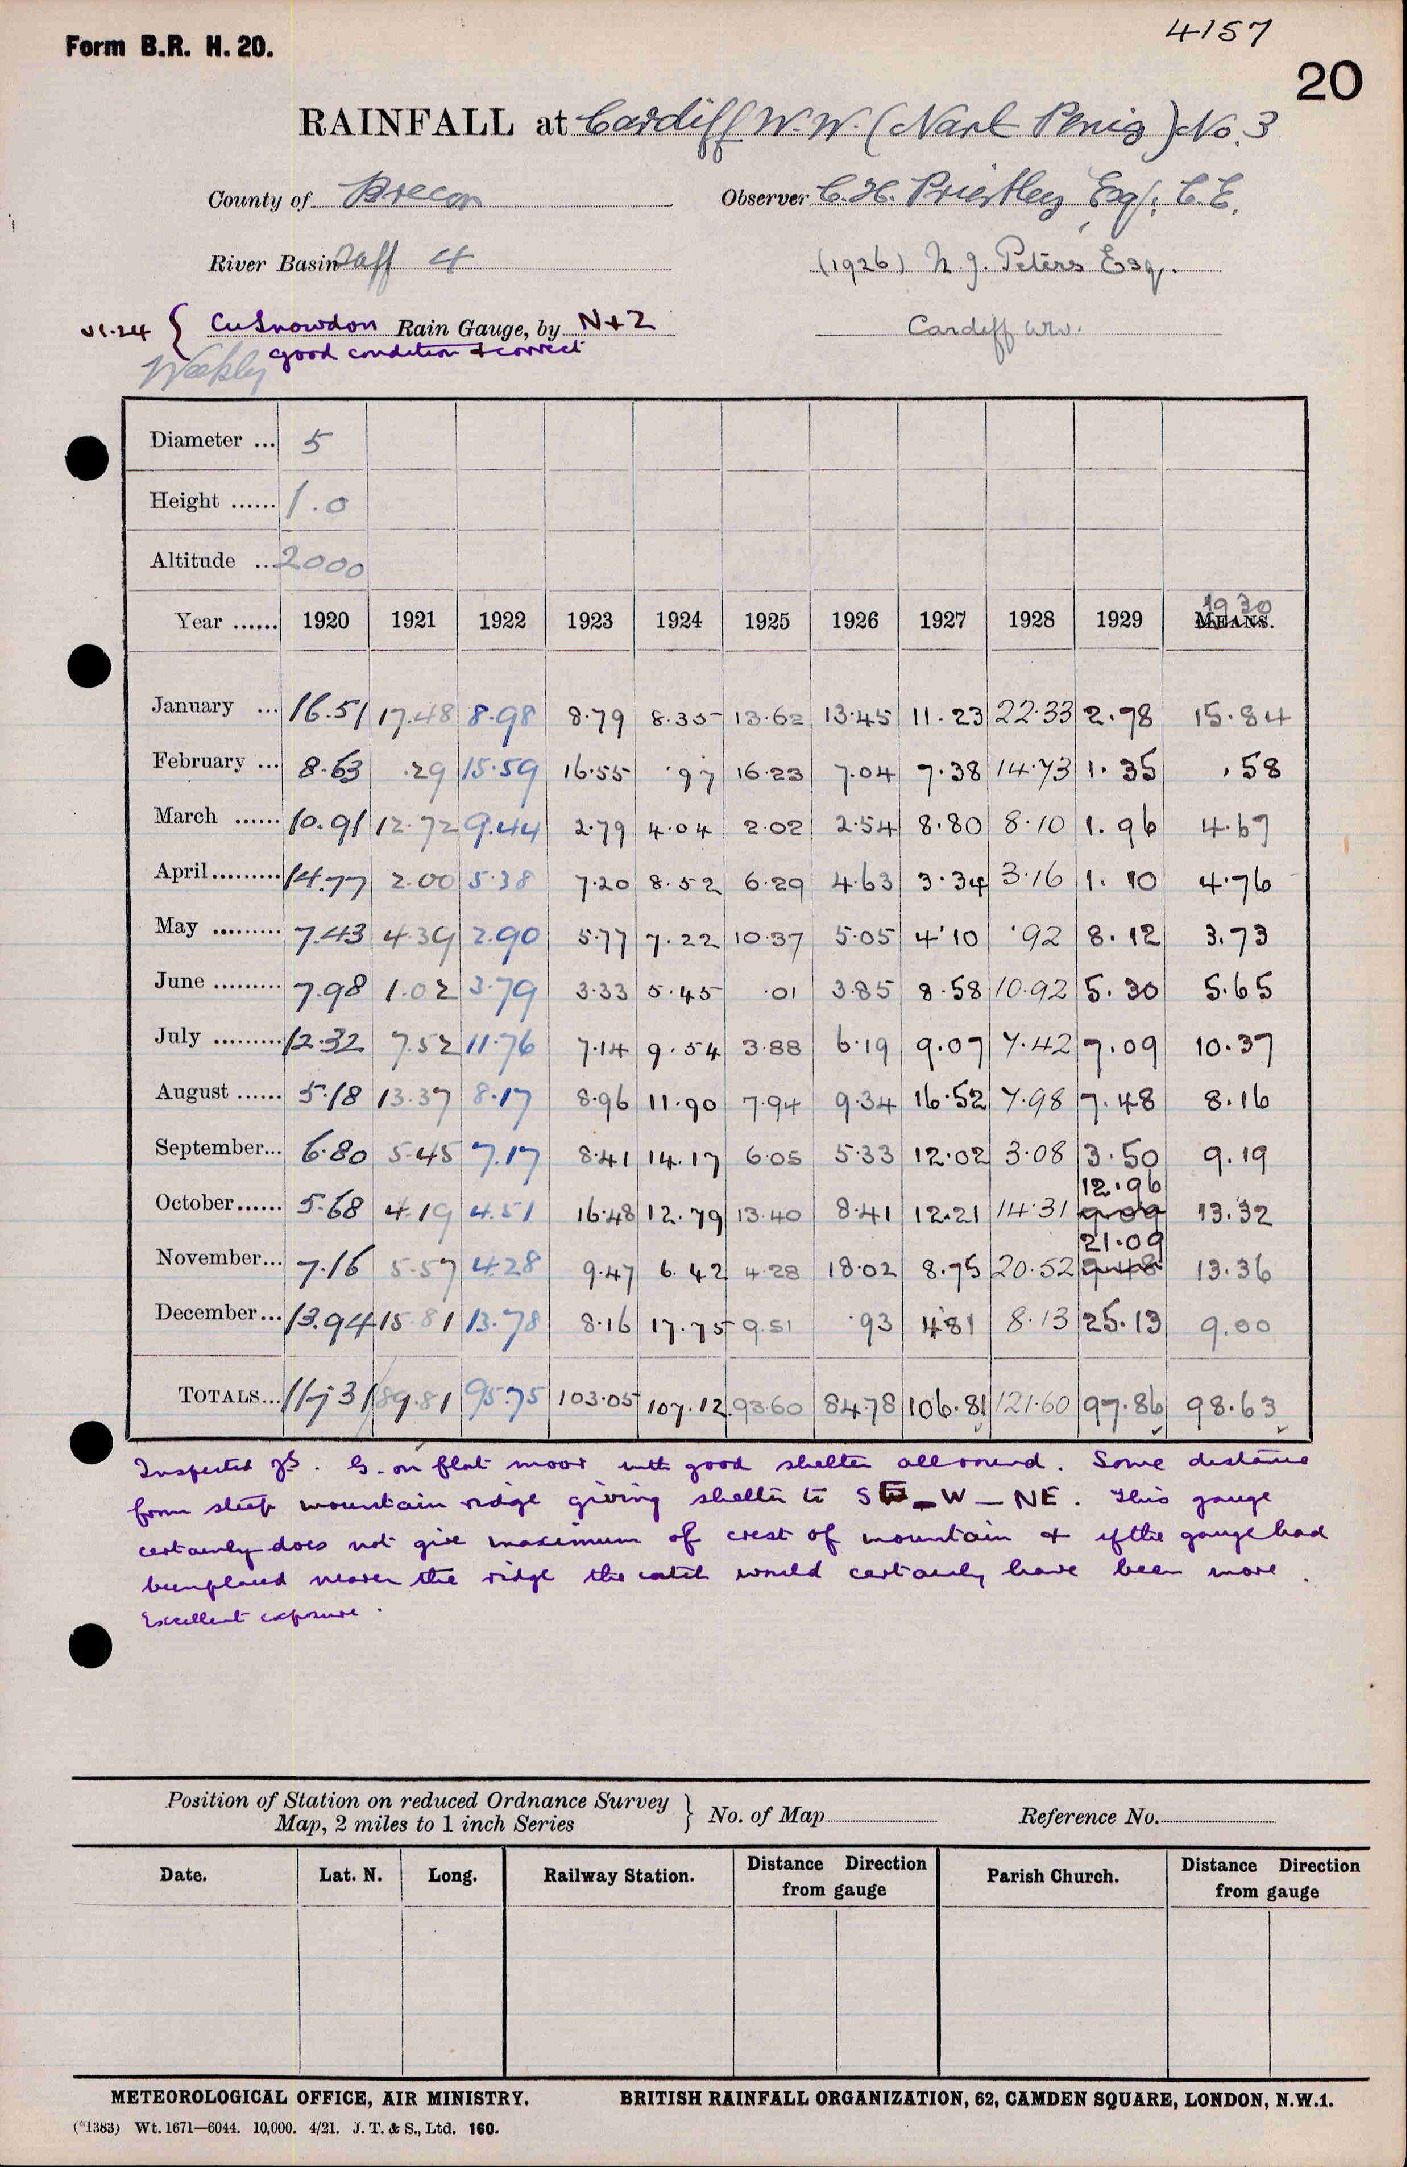 4157
Form B.R. H. 20.
20
RAINFALL at Cardiff W.W. (Nant Penig) No. 3
County of Brecon Observer C.H. Priestley Esq. C.E.
River Basin Taff 4 (1926) N J. Peters Esq.
VI.24 { Cu Snowdon Rain Gauge, by N+Z Cardiff WW.
good condition + correct
Weekly
Diameter ... 5
Height ...... 1.0
Altitude ... 2000
Year ...... 1920 1921 1922 1923 1924 1925 1926 1927 1928 1929 MEANS. 1930
January ... 16.51 17.48 8.98 8.79 8.35 13.62 13.45 11.23 22.33 2.78 15.84
February ... 8.63 .29 15.59 16.55 .97 16.23 7.04 7.38 14.73 1.35 .58
March ...... 10.91 12.72 9.44 2.79 4.04 2.02 2.54 8.80 8.10 1.96 4.67
April ......... 14.77 2.00 5.38 7.20 8.52 6.29 4.63 3.34 3.16 1.10 4.76
May ......... 7.43 4.39 2.90 5.77 7.22 10.37 5.05 4.10 .92 8.12 3.73
June ......... 7.98 1.02 3.79 3.33 5.45 .01 3.85 8.58 10.92 5.30 5.65
July ......... 12.32 7.52 11.76 7.14 9.54 3.88 6.19 9.07 7.42 7.09 10.37
August ...... 5.18 13.37 8.17 8.96 11.90 7.94 9.34 16.52 7.98 7.48 8.16
September... 6.80 5.45 7.17 8.41 14.17 6.05 5.33 12.02 3.08 3.50 9.19
October...... 5.68 4.19 4.51 16.48 12.79 13.40 8.41 12.21 14.31 12.96 9.09 13.32
November... 7.16 5.57 4.28 9.47 6.42 4.28 18.02 8.75 20.52 21.09 9.48 13.36
December... 13.94 15.81 13.78 8.16 17.75 9.51 .93 4.81 8.13 25.13 9.00
TOTALS... 117.31 89.81 95.75 103.05 107.12 93.60 84.78 106.81 121.60 97.86 98.63
Inspected G. on flat moor with good shelter all round. Some distance
from steep mountain ridge giving shelter to S - W - NE. This gauge
certainly does not give maximum of crest of mountain + if the gauge had
been placed nearer the ridge the catch would certainly have been more.
Excellent exposure.
Position of Station on reduced Ordnance Survey
Map, 2 miles to 1 inch Series } No. of Map Reference No.
Date. Lat. N. Long. Railway Station. Distance Direction from gauge Parish Church. Distance Direction from gauge
METEOROLOGICAL OFFICE, AIR MINISTRY. BRITISH RAINFALL ORGANIZATION, 62, CAMDEN SQUARE, LONDON, N.W.1.
(*1383) Wt. 1671—6044. 10,000. 4/21. J. T. & S., Ltd. 160.